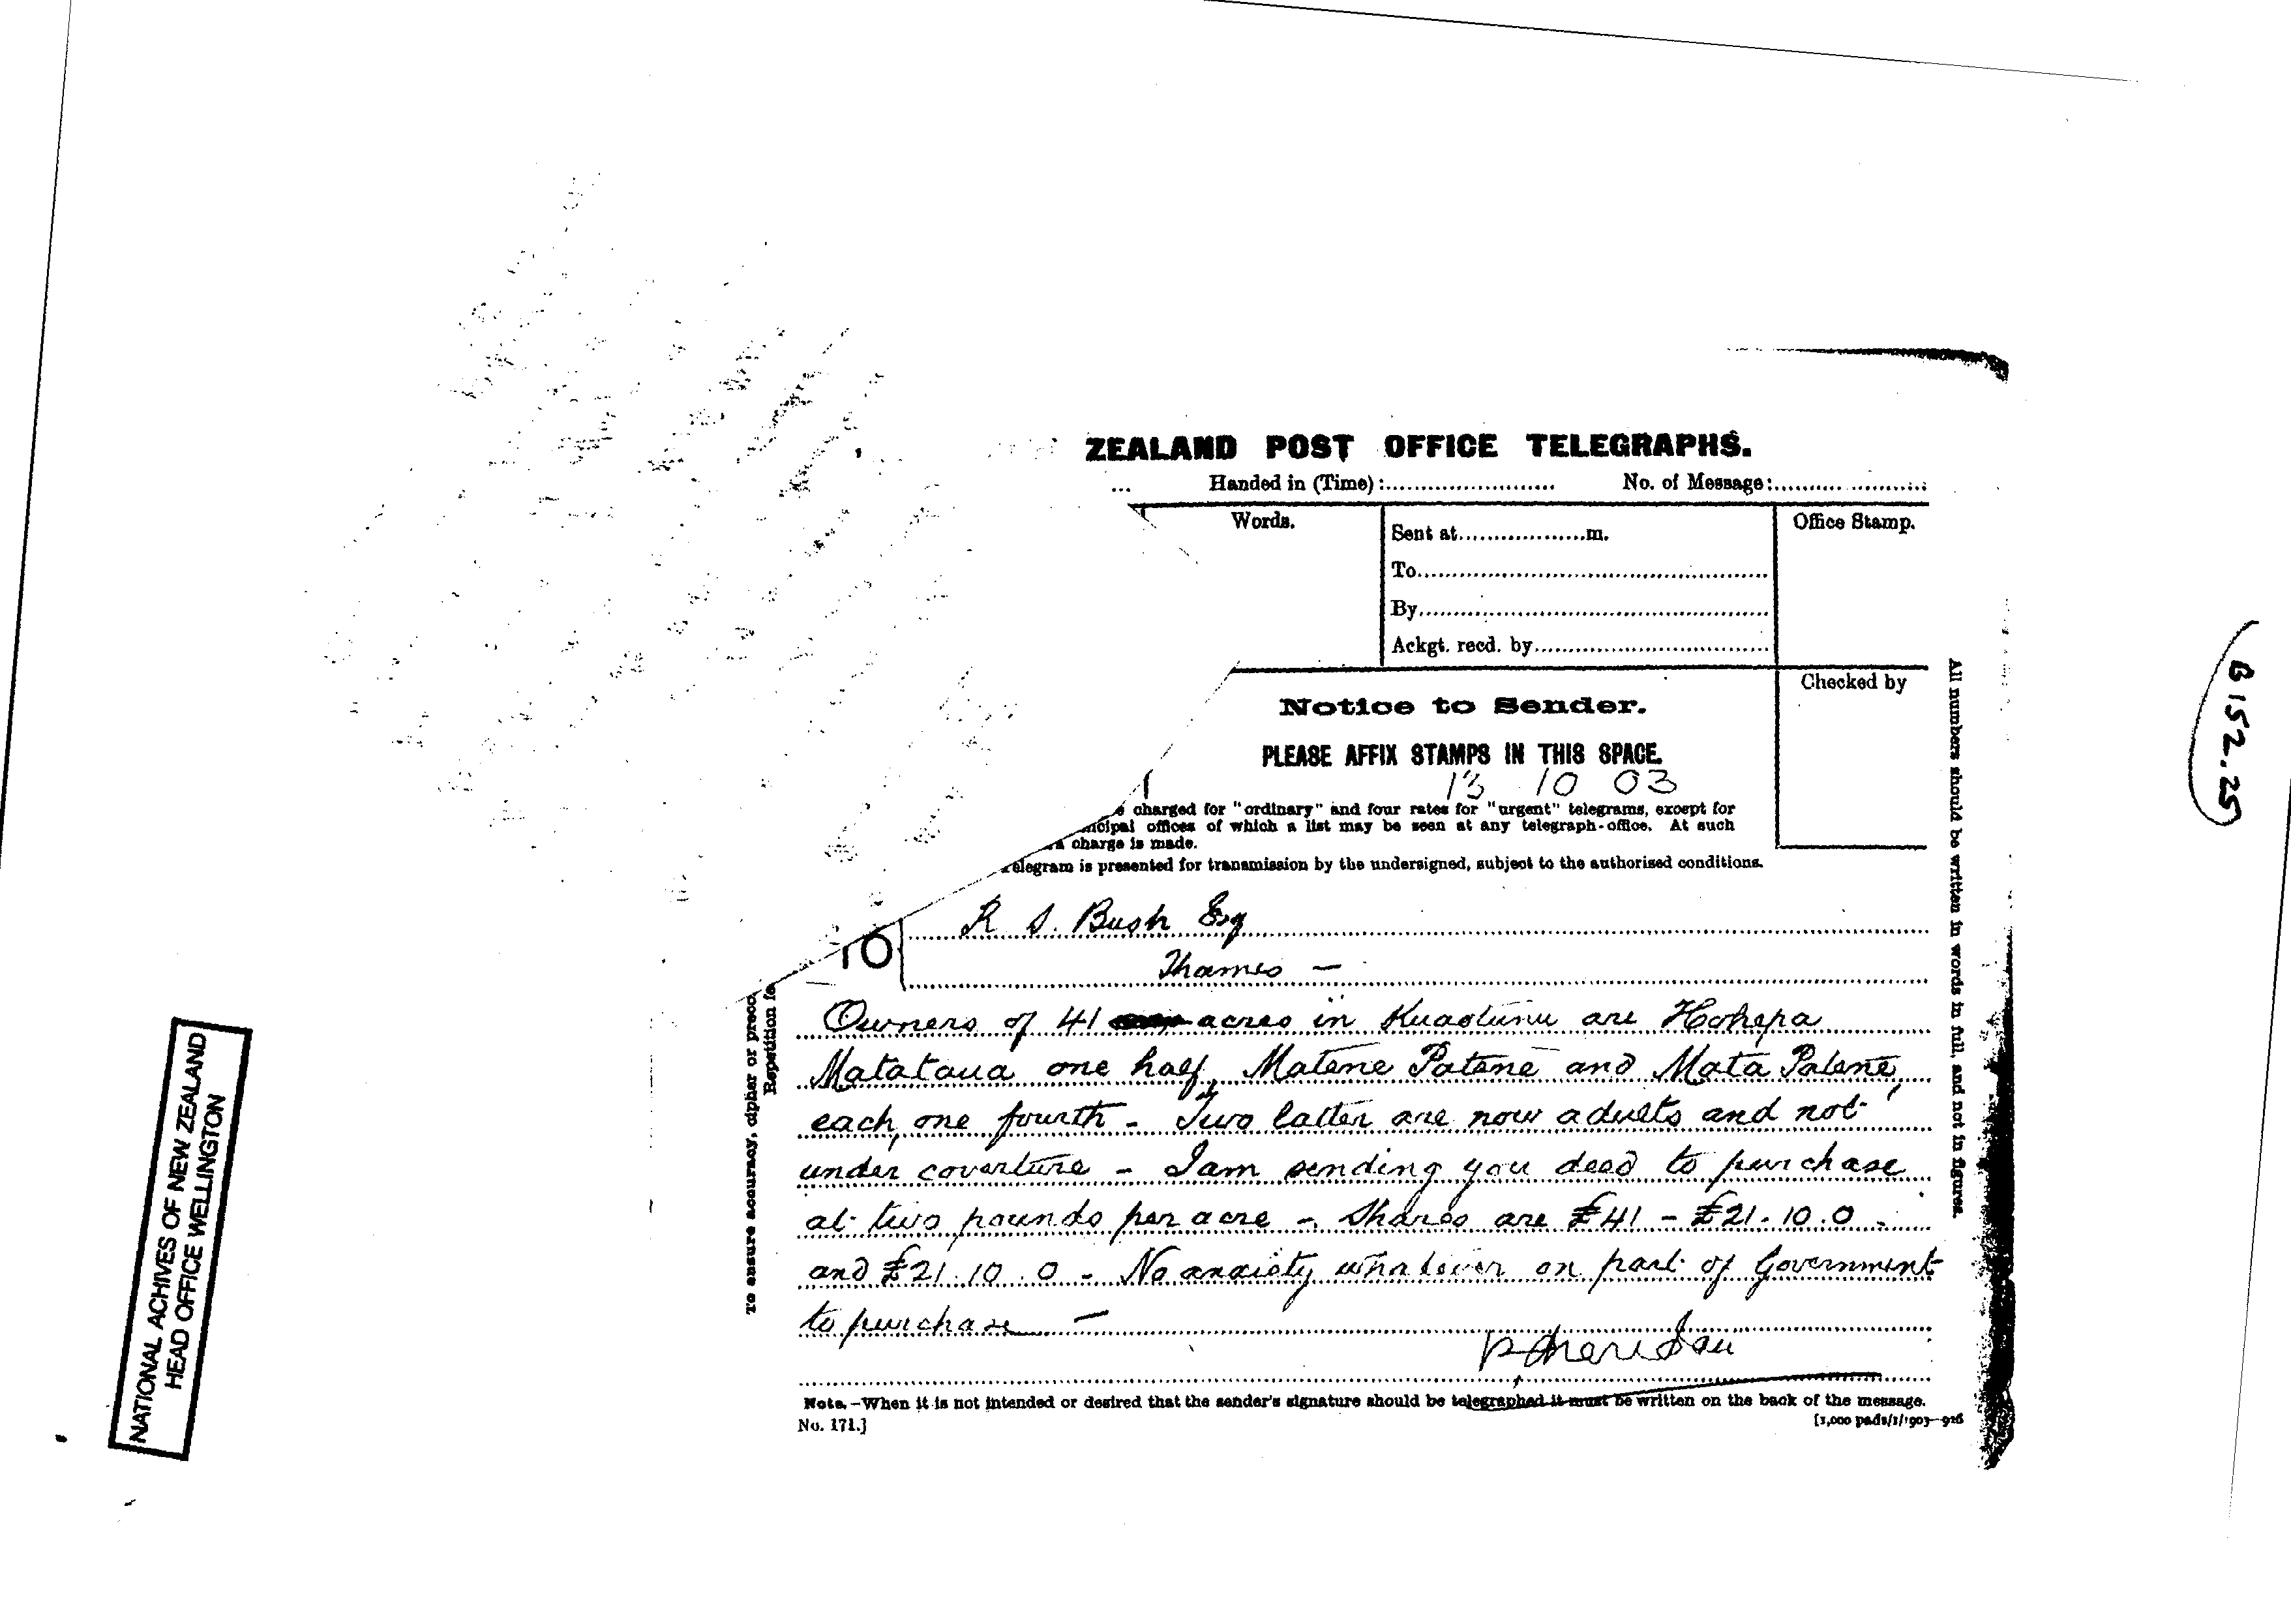 ZEALAND POST OFFICE TELEGRAPHS.
Handed in (Time): No. of Message:
Words.
Sent at m.
To
By
Ackgt. recd. by
Office Stamp.
Notice to Sender.
PLEASE AFFIX STAMPS IN THIS SPACE.
13 10 03
Checked by
charged for "ordinary" and four rates for "urgent" telegrams, except for
offices of which a list may be seen at any telegraph-office. At such
charge is made.
elegram is presented for transmission by the undersigned, subject to the authorised conditions.
TO
R S. Bush Esq
Thames —
Owners of 41 acres in Kuaotunu are Hohepa
Mataitaua one half, Matene Patene and Mata Patene,
each, one fourth - Two latter are now adults and not
under coverture - I am sending you deed to purchase
at two pounds per acre - Shares are £41 - £21.10.0.
and £21.10.0 - No anxiety whatever on part of Government
to purchase —
P Sheridan
Note.—When it is not intended or desired that the sender's signature should be telegraphed it must be written on the back of the message.
No. 171.]
[1,000 pads/1/1903—926
To ensure accuracy, cipher or preco
Repetition fe
All numbers should be written in words in full, and not in figures.
NATIONAL ACHIVES OF NEW ZEALAND
HEAD OFFICE WELLINGTON
B152.25